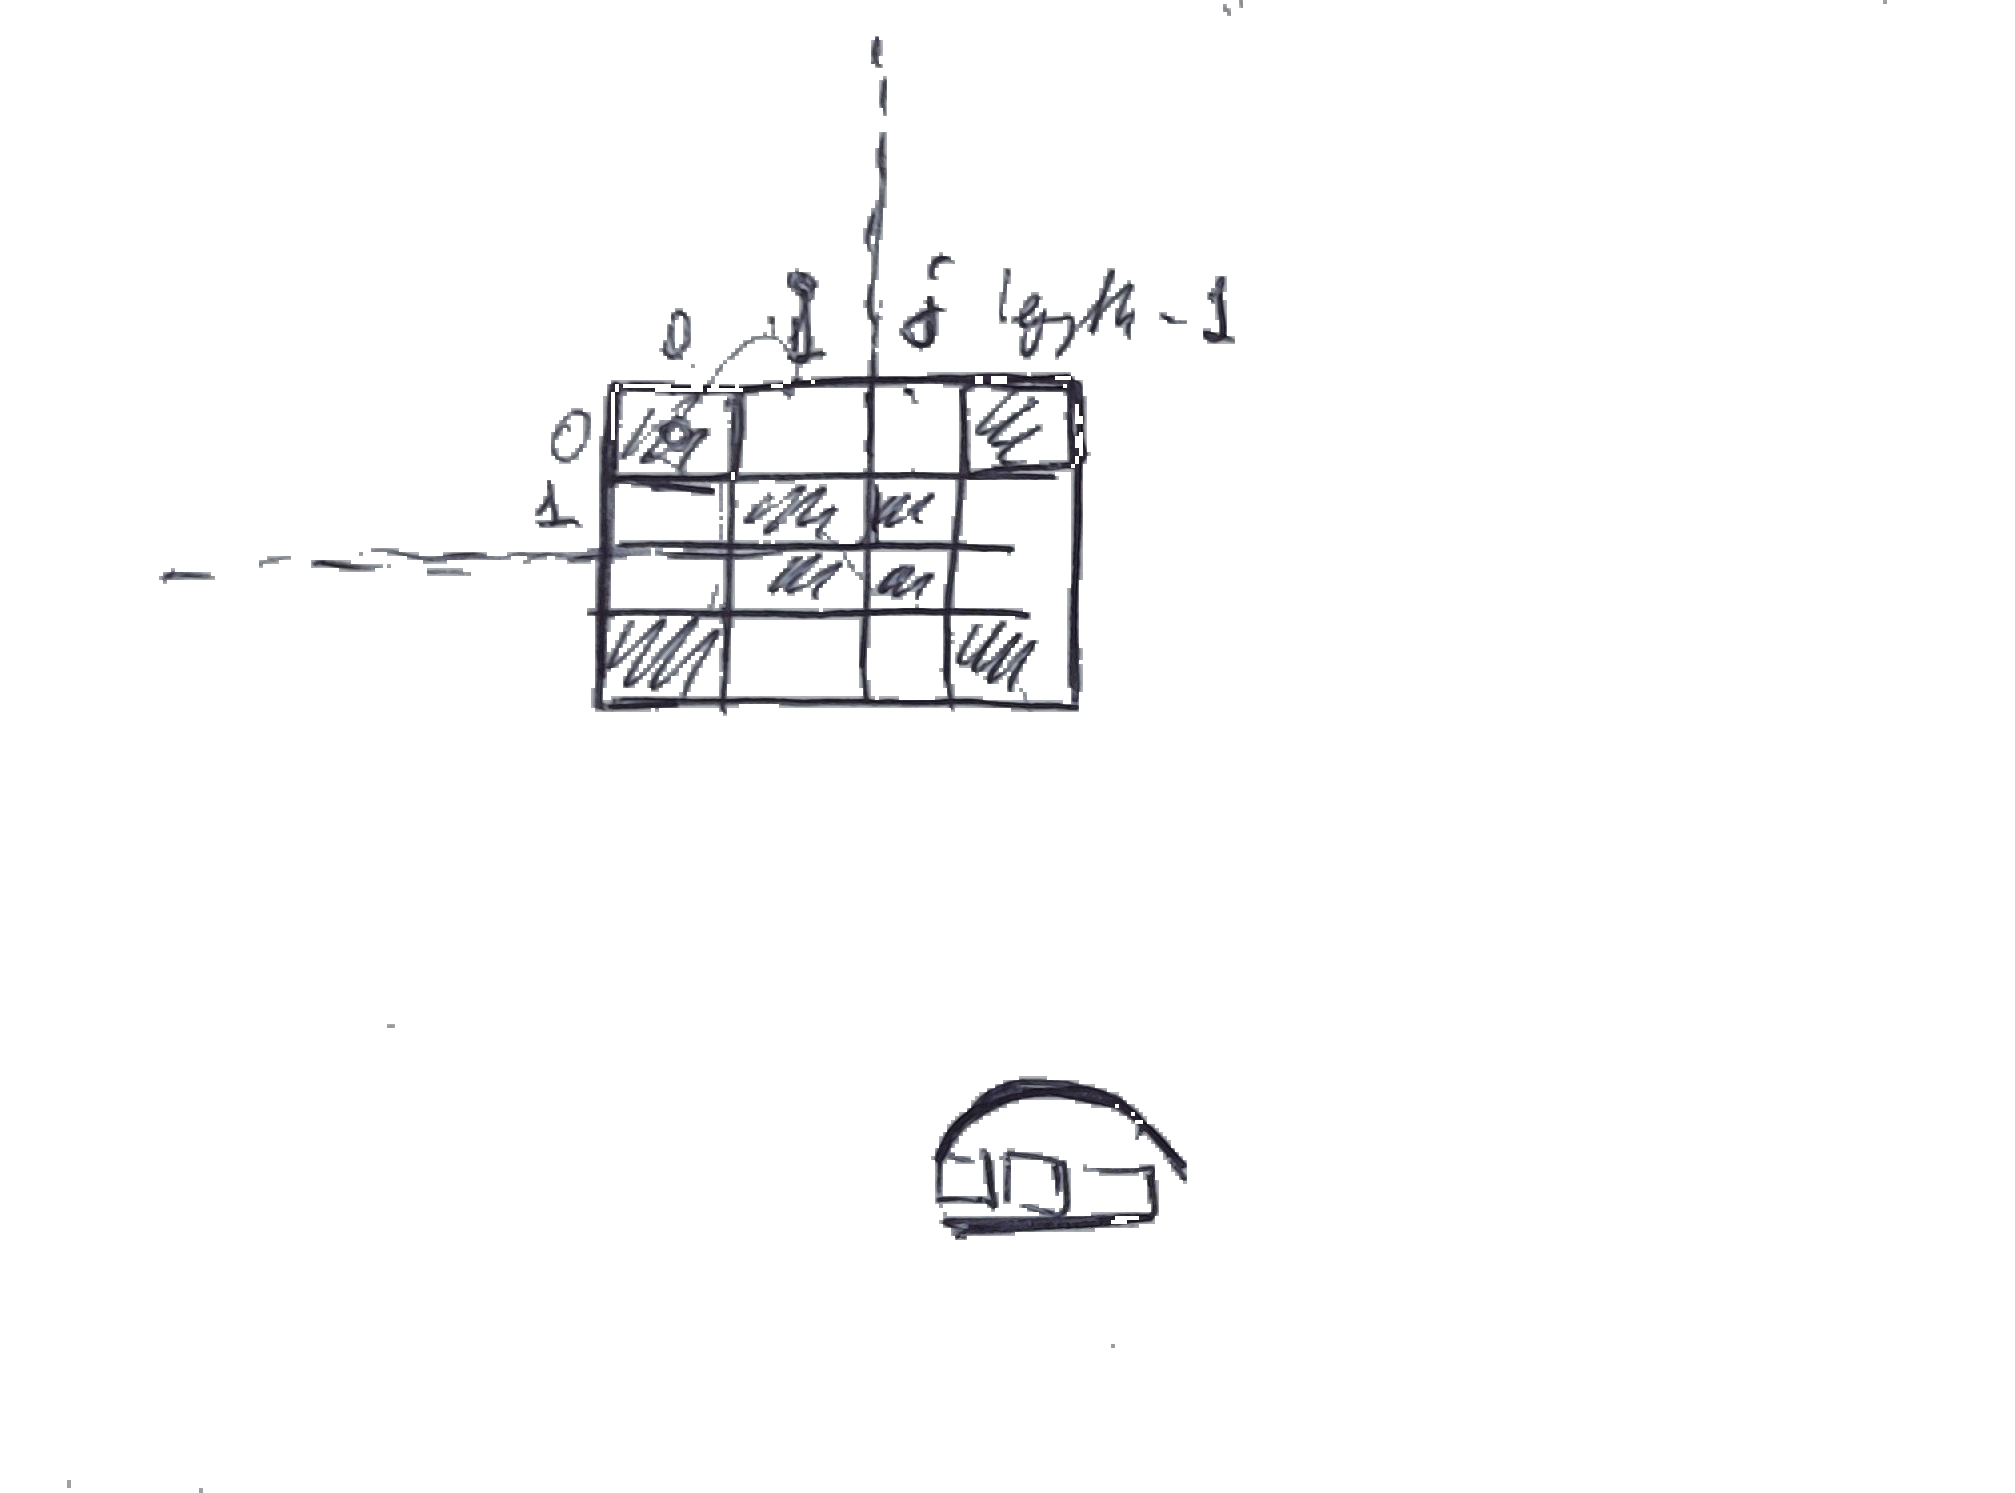 0 1 j length - 1
0
1